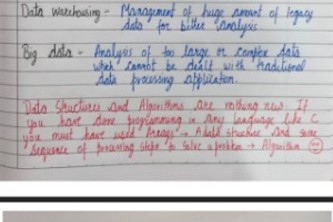 Data warehousing - Management of huge amount of legacy
data for better analysis.
Big data - Analysis of too large or complex data
which cannot be dealt with traditional
data processing application.
Data Structures and Algorithms are nothing new. If
you have done programming in any language like C
you must have used Arrays → A data structure and some
sequence of processing steps to solve a problem → Algorithm